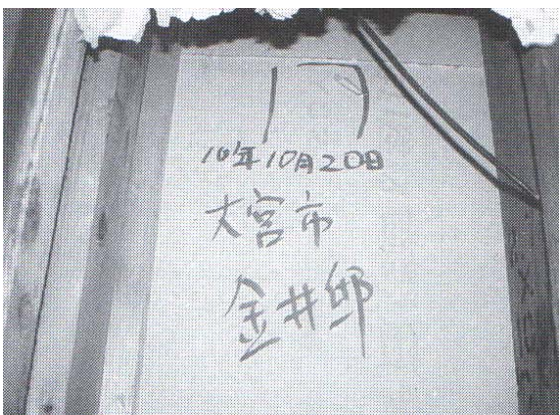 17
10年10月20日
大宮市
金井邸